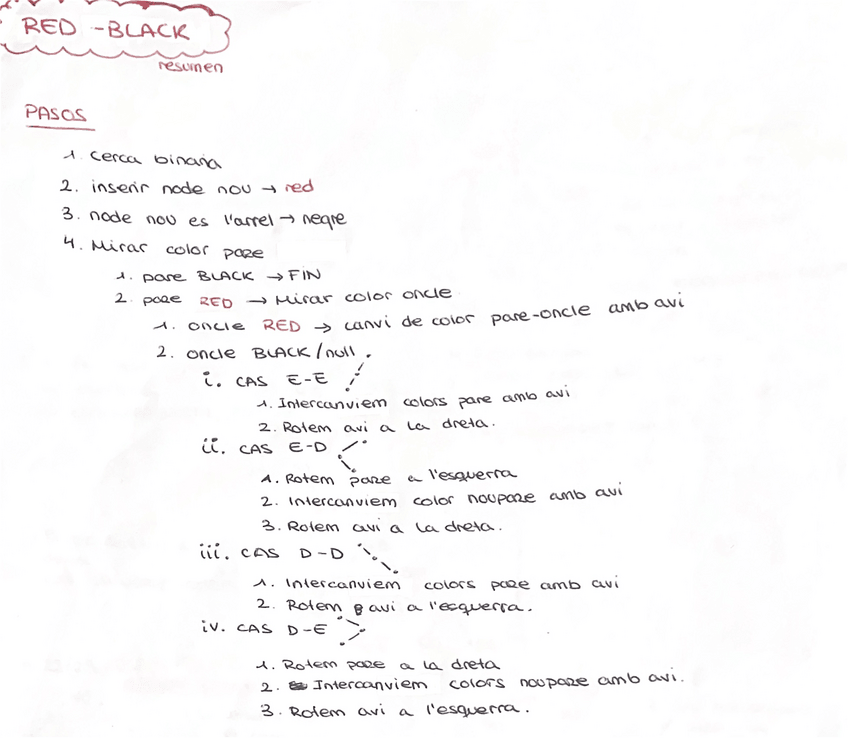 RED - BLACK
resumen
PASOS
1. Cerca binaria
2. inserir node nou → red
3. node nou es l'arrel → negre
4. Mirar color pare
1. pare BLACK → FIN
2. pare RED → Mirar color oncle
1. oncle RED → canvi de color pare-oncle amb avi
2. oncle BLACK/null.
i. CAS E-E
1. Intercanviem colors pare amb avi
2. Rotem avi a la dreta.
ii. CAS E-D
1. Rotem pare a l'esquerra
2. Intercanviem color noupare amb avi
3. Rotem avi a la dreta.
iii. CAS D-D
1. Intercanviem colors pare amb avi
2. Rotem avi a l'esquerra.
iv. CAS D-E
1. Rotem pare a la dreta
2. Intercanviem colors noupare amb avi.
3. Rotem avi a l'esquerra.